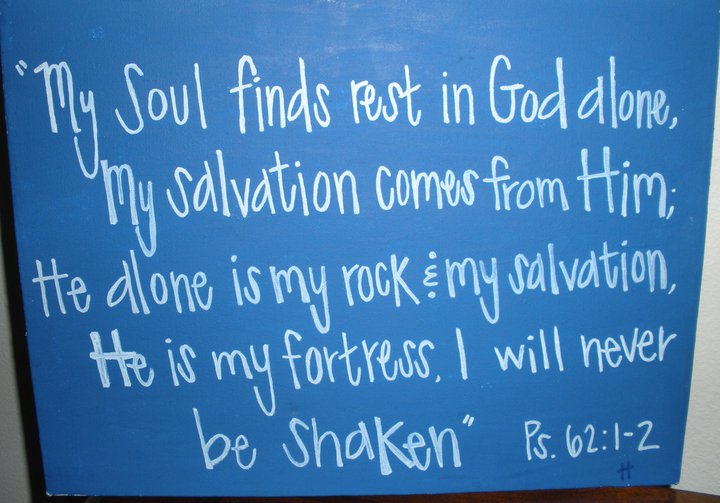 "My Soul finds rest in God alone,
My salvation comes from Him;
He alone is my rock & my salvation,
He is my fortress, I will never
be shaken" Ps. 62:1-2
H